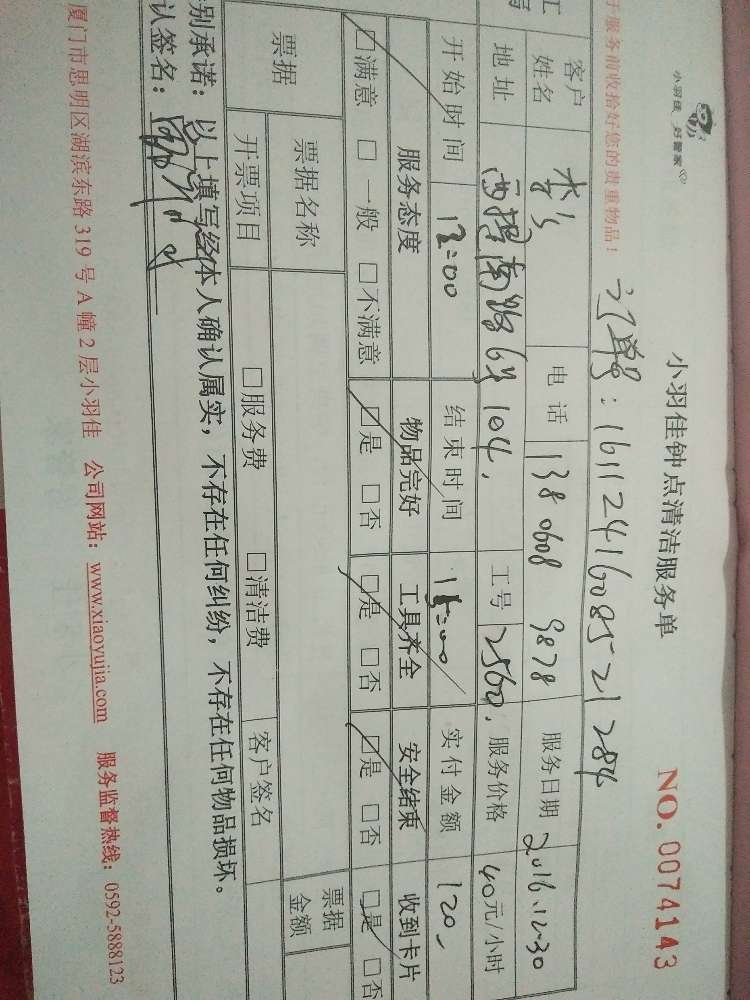 小羽佳 好管家
小羽佳钟点清洁服务单
NO. 0074143
于服务前收拾好您的贵重物品！
订单号：1611241608521284
客户姓名 李 电话 138 0608 9878 服务日期 2016.12-30
地址 路 104. 工号 2560. 服务价格 40元/小时
开始时间 12:00 结束时间 15:00 实付金额 120
服务态度 物品完好 工具齐全 安全结束 收到卡片
□满意 □一般 □不满意 □是 □否 □是 □否 □是 □否 □是 □否
票据 票据名称 票据金额
开票项目 □服务费 □清洁费 客户签名
别承诺：以上填写经本人确认属实，不存在任何纠纷，不存在任何物品损坏。
认签名：
厦门市思明区湖滨东路 319 号 A 幢 2 层小羽佳 公司网站：www.xiaoyujia.com 服务监督热线：0592-5888123